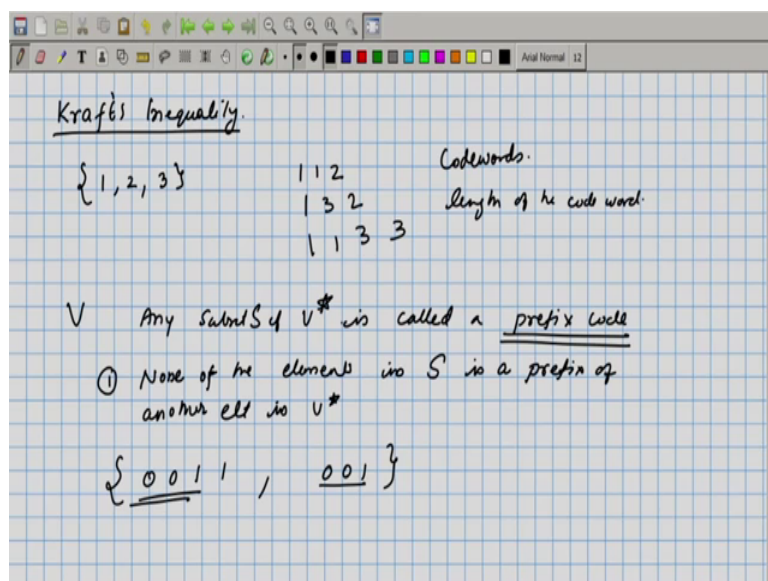 Arial Normal 12
Kraft's Inequality.
{1, 2, 3}
1 1 2
1 3 2
1 1 3 3
Codewords.
length of he code word.
V Any subset S of V* is called a prefix code
① None of he elements in S is a prefix of
another elt in V*
{ 0 0 1 1 , 0 0 1 }